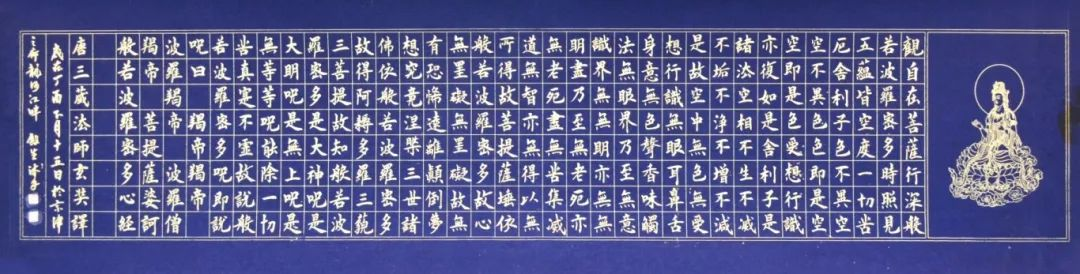 觀自在菩薩行深般
若波羅密多時照見
五蘊皆空度一切苦
厄舍利子色不異空
空不異色色即是空
空即是色受想行識
亦復如是舍利子是
諸法空相不生不滅
不垢不淨不增不減
是故空中無色無受
想行識無眼耳鼻舌
身意無色聲香味觸
法無眼界乃至無意
識界無無明亦無無
明盡乃至無老死亦
無老死盡無苦集滅
道無智亦無得以無
所得故菩提薩埵依
般若波羅密多故心
無罣礙無罣礙故無
有恐怖遠離顛倒夢
想究竟涅槃三世諸
佛依般若波羅密多
故得阿耨多羅三藐
三菩提故知般若波
羅密多是大神呪是
大明呪是無上呪是
無等等呪能除一切
苦真實不虛故說般
若波羅密多呪即說
呪曰 羯帝羯帝
波羅羯帝 波羅僧
羯帝 菩提薩婆訶
般若波羅密多心經
唐三藏法師玄奘譯
歲在丁酉月十五日於京津